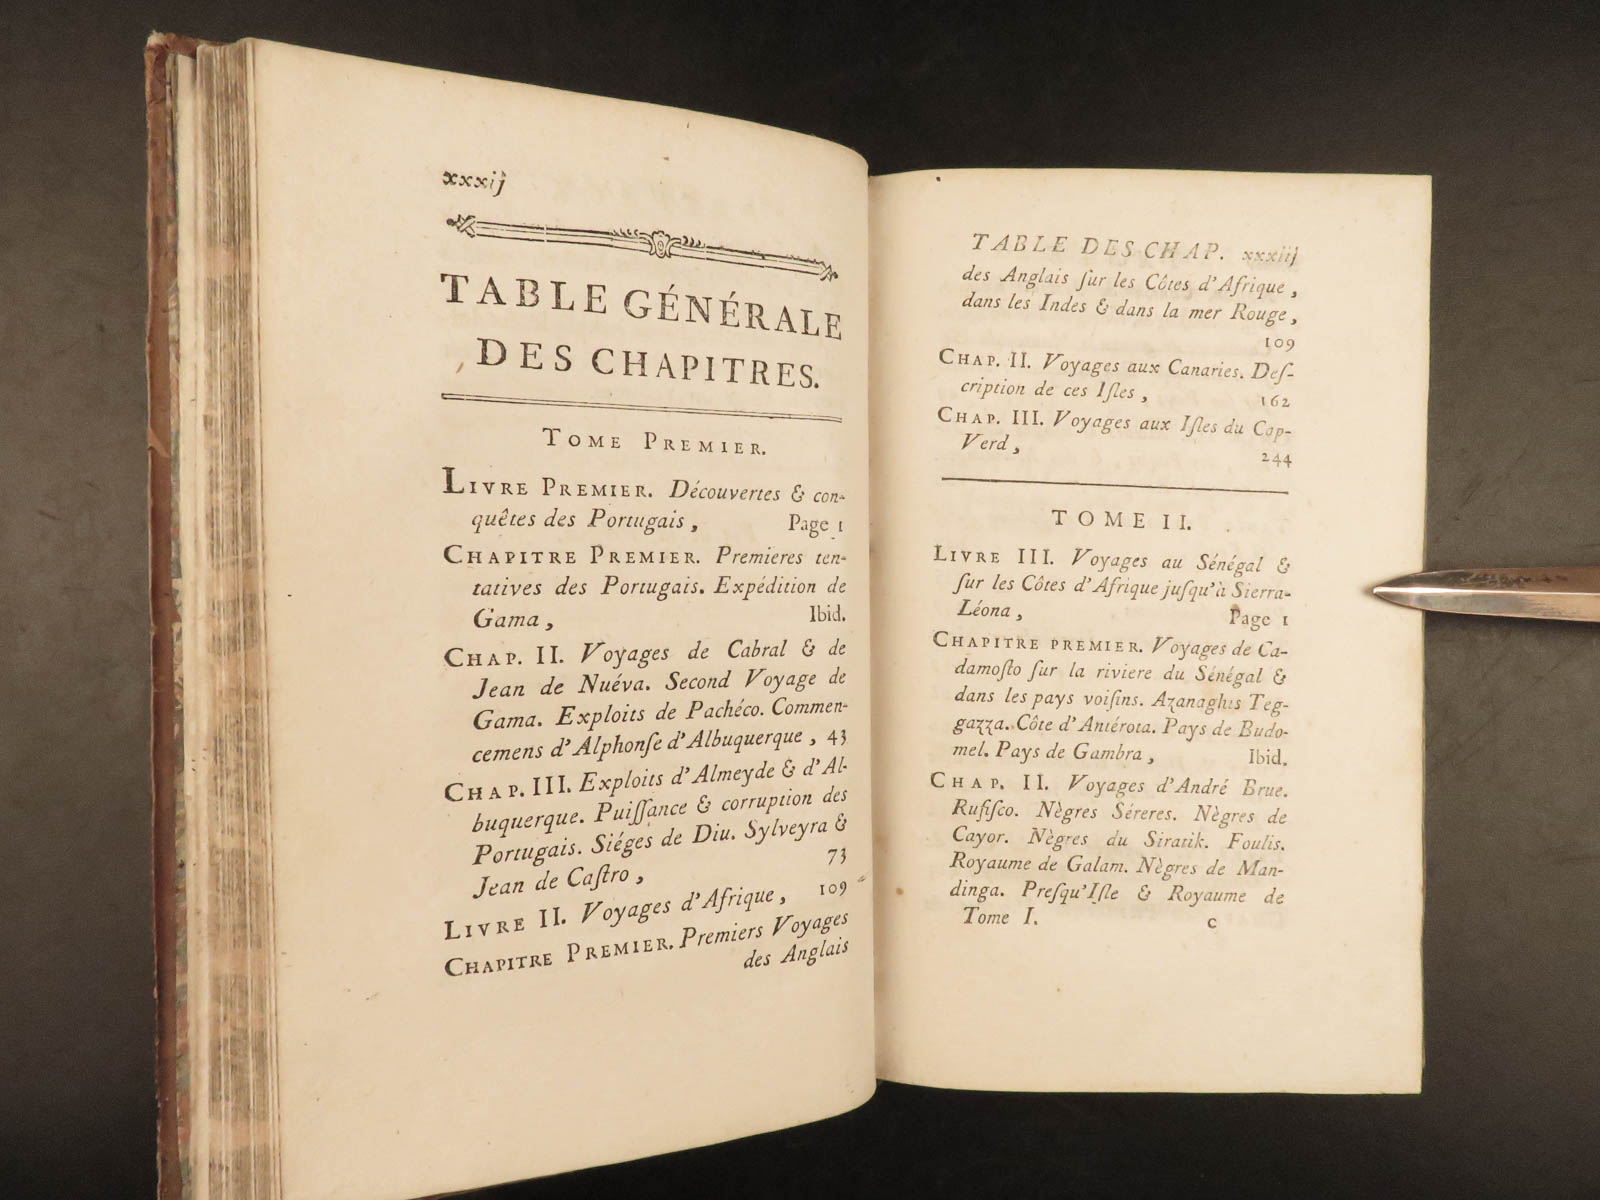 xxxij
TABLE GÉNÉRALE
DES CHAPITRES.
TOME PREMIER.
LIVRE PREMIER. Découvertes & con-
quêtes des Portugais, Page 1
CHAPITRE PREMIER. Premieres ten-
tatives des Portugais. Expédition de
Gama, Ibid.
CHAP. II. Voyages de Cabral & de
Jean de Nuéva. Second Voyage de
Gama. Exploits de Pachéco. Commen-
cemens d'Alphonſe d'Albuquerque, 43
CHAP. III. Exploits d'Almeyde & d'Al-
buquerque. Puiſſance & corruption des
Portugais. Siéges de Diu. Sylveyra &
Jean de Caſtro, 73
LIVRE II. Voyages d'Afrique, 109
CHAPITRE PREMIER. Premiers Voyages
des Anglais
TABLE DES CHAP. xxxiij
des Anglais ſur les Côtes d'Afrique,
dans les Indes & dans la mer Rouge,
109
CHAP. II. Voyages aux Canaries. Deſ-
cription de ces Iſles, 162
CHAP. III. Voyages aux Iſles du Cap-
Verd, 244
TOME II.
LIVRE III. Voyages au Sénégal &
ſur les Côtes d'Afrique juſqu'à Sierra-
Léona, Page 1
CHAPITRE PREMIER. Voyages de Ca-
damoſto ſur la riviere du Sénégal &
dans les pays voiſins. Azanaghis Teg-
gazza. Côte d'Antérota. Pays de Budo-
mel. Pays de Gambra, Ibid.
CHAP. II. Voyages d'André Brue.
Rufiſco. Nègres Séreres. Nègres de
Cayor. Nègres du Siratik. Foulis.
Royaume de Galam. Nègres de Man-
dinga. Preſqu'Iſle & Royaume de
Tome I. c